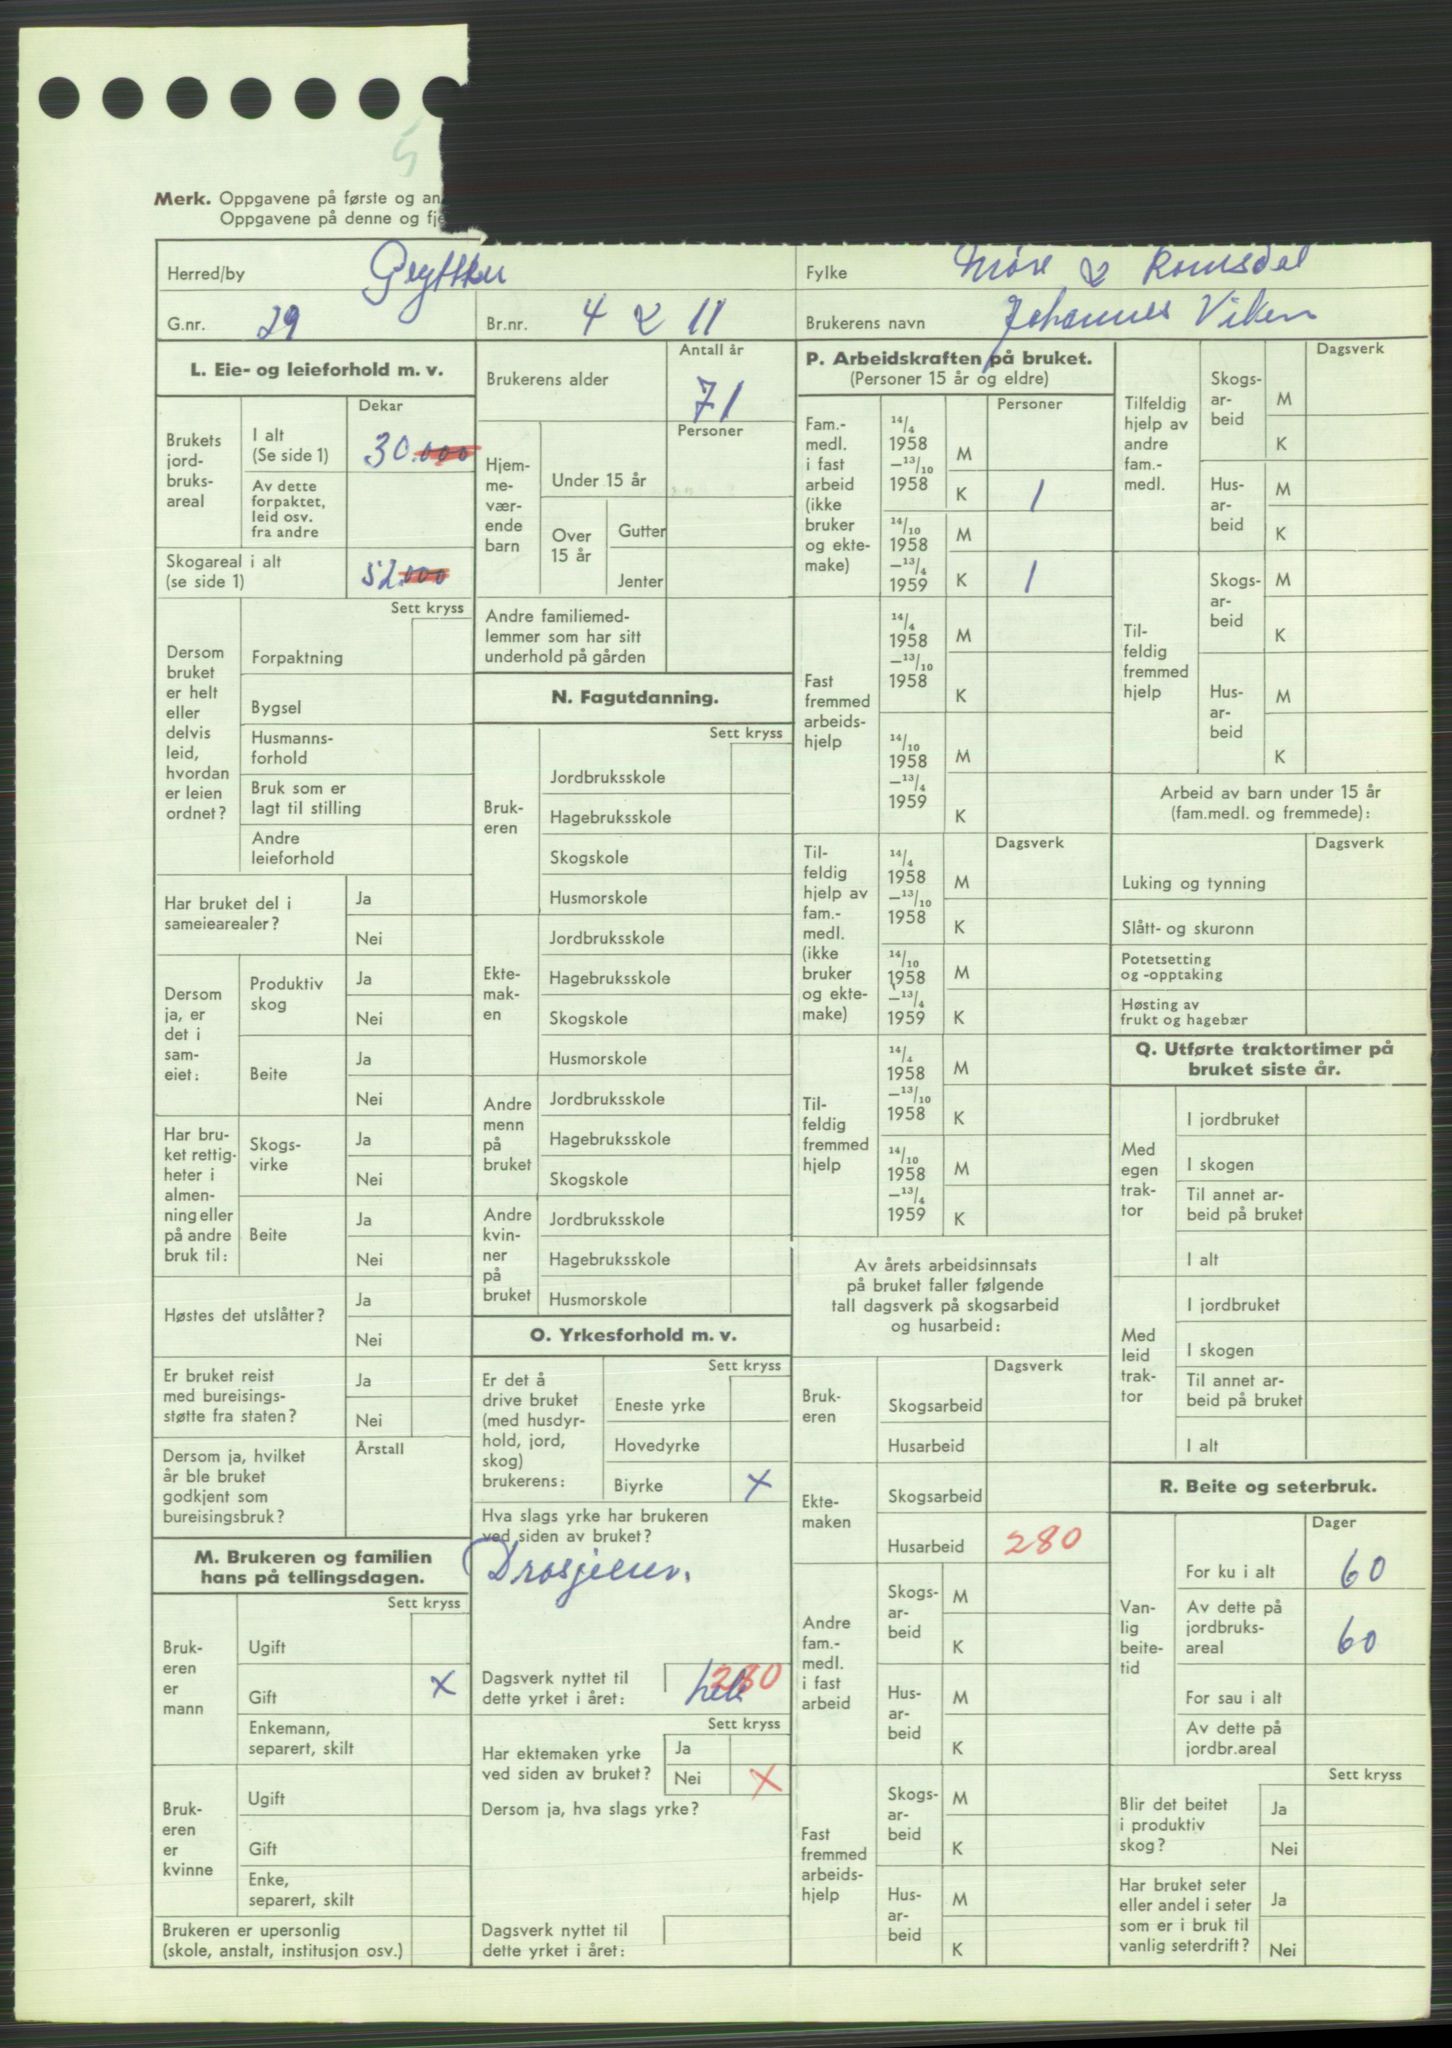 5
Merk. Oppgavene på første og an
Oppgavene på denne og fje
Herred/by Grytten
Fylke Møre & Romsdal
G.nr. 29
Br.nr. 4 & 11
Brukerens navn Johannes Viken
L. Eie- og leieforhold m. v.
Dekar
Brukets
jord-
bruks-
areal
I alt
(Se side 1) 30.000
Av dette
forpaktet,
leid osv.
fra andre
Skogareal i alt
(se side 1) 52.000
Sett kryss
Dersom
bruket
er helt
eller
delvis
leid,
hvordan
er leien
ordnet?
Forpaktning
Bygsel
Husmanns-
forhold
Bruk som er
lagt til stilling
Andre
leieforhold
Har bruket del i
sameiearealer?
Ja
Nei
Dersom
ja, er
det i
sam-
eiet:
Produktiv
skog
Ja
Nei
Beite
Ja
Nei
Har bru-
ket rettig-
heter i
almen-
ning eller
på andre
bruk til:
Skogs-
virke
Ja
Nei
Beite
Ja
Nei
Høstes det utslåtter?
Ja
Nei
Er bruket reist
med bureisings-
støtte fra staten?
Ja
Nei
Dersom ja, hvilket
år ble bruket
godkjent som
bureisingsbruk?
Årstall
M. Brukeren og familien
hans på tellingsdagen.
Sett kryss
Bruk-
eren
er
mann
Ugift
Gift X
Enkemann,
separert, skilt
Bruk-
eren
er
kvinne
Ugift
Gift
Enke,
separert, skilt
Brukeren er upersonlig
(skole, anstalt, institusjon osv.)
Antall år
Brukerens alder 71
Personer
Hjem-
me-
vær-
ende
barn
Under 15 år
Over
15 år
Gutter
Jenter
Andre familiemed-
lemmer som har sitt
underhold på gården
N. Fagutdanning.
Sett kryss
Bruk-
eren
Jordbruksskole
Hagebruksskole
Skogskole
Husmorskole
Ekte-
mak-
en
Jordbruksskole
Hagebruksskole
Skogskole
Husmorskole
Andre
menn
på
bruket
Jordbruksskole
Hagebruksskole
Skogskole
Andre
kvin-
ner
på
bruket
Jordbruksskole
Hagebruksskole
Husmorskole
O. Yrkesforhold m. v.
Sett kryss
Er det å
drive bruket
(med husdyr-
hold, jord,
skog)
brukerens:
Eneste yrke
Hovedyrke
Biyrke X
Hva slags yrke har brukeren
ved siden av bruket?
Drosjeeier.
Dagsverk nyttet til
dette yrket i året: hele 280
Sett kryss
Har ektemaken yrke
ved siden av bruket?
Ja
Nei X
Dersom ja, hva slags yrke?
Dagsverk nyttet til
dette yrket i året:
P. Arbeidskraften på bruket.
(Personer 15 år og eldre)
Personer
Fam.-
medl.
i fast
arbeid
(ikke
bruker
og ekte-
make)
14/4
1958
–13/10
1958
M
K 1
14/10
1958
–13/4
1959
M
K 1
Fast
fremmed
arbeids-
hjelp
14/4
1958
–13/10
1958
M
K
14/10
1958
–13/4
1959
M
K
Dagsverk
Til-
feldig
hjelp av
fam.-
medl.
(ikke
bruker
og ekte-
make)
14/4
1958
–13/10
1958
M
K
14/10
1958
–13/4
1959
M
K
Til-
feldig
fremmed
hjelp
14/4
1958
–13/10
1958
M
K
14/10
1958
–13/4
1959
M
K
Av årets arbeidsinnsats
på bruket faller følgende
tall dagsverk på skogsarbeid
og husarbeid:
Dagsverk
Bruk-
eren
Skogsarbeid
Husarbeid
Ekte-
maken
Skogsarbeid
Husarbeid 280
Andre
fam.-
medl.
i fast
arbeid
Skogs-
ar-
beid
M
K
Hus-
ar-
beid
M
K
Fast
fremmed
arbeids-
hjelp
Skogs-
ar-
beid
M
K
Hus-
ar-
beid
M
K
Dagsverk
Tilfeldig
hjelp av
andre
fam.-
medl.
Skogs-
ar-
beid
M
K
Hus-
ar-
beid
M
K
Til-
feldig
fremmed
hjelp
Skogs-
ar-
beid
M
K
Hus-
ar-
beid
M
K
Arbeid av barn under 15 år
(fam.medl. og fremmede):
Dagsverk
Luking og tynning
Slått- og skuronn
Potetsetting
og -opptaking
Høsting av
frukt og hagebær
Q. Utførte traktortimer på
bruket siste år.
Med
egen
trak-
tor
I jordbruket
I skogen
Til annet ar-
beid på bruket
I alt
Med
leid
trak-
tor
I jordbruket
I skogen
Til annet ar-
beid på bruket
I alt
R. Beite og seterbruk.
Dager
Van-
lig
beite-
tid
For ku i alt 60
Av dette på
jordbruks-
areal 60
For sau i alt
Av dette på
jordbr.areal
Sett kryss
Blir det beitet
i produktiv
skog?
Ja
Nei
Har bruket seter
eller andel i seter
som er i bruk til
vanlig seterdrift?
Ja
Nei